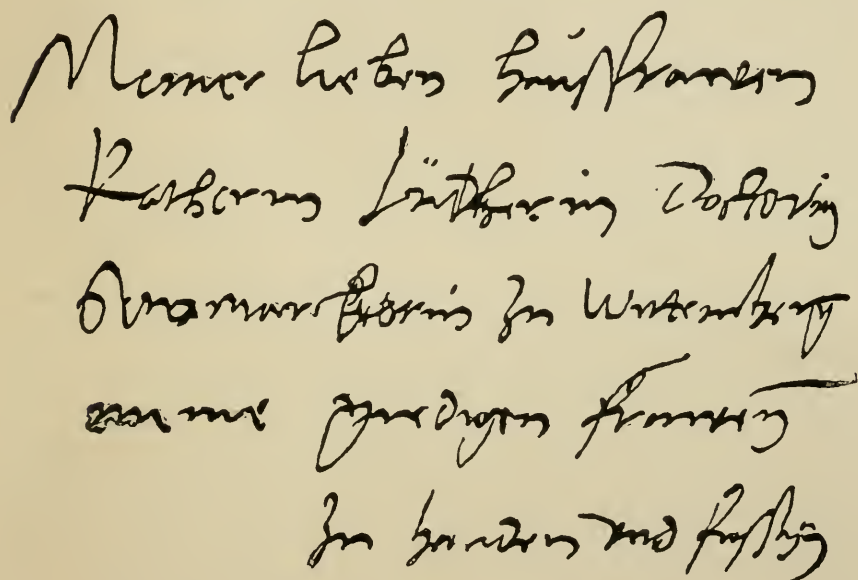 Meiner lieben hausfrawen
Katherin Lutherin Doctorin
Sewmarckterin zu Wittemberg
meiner gnedigen frawen
zu handen vnd fussen